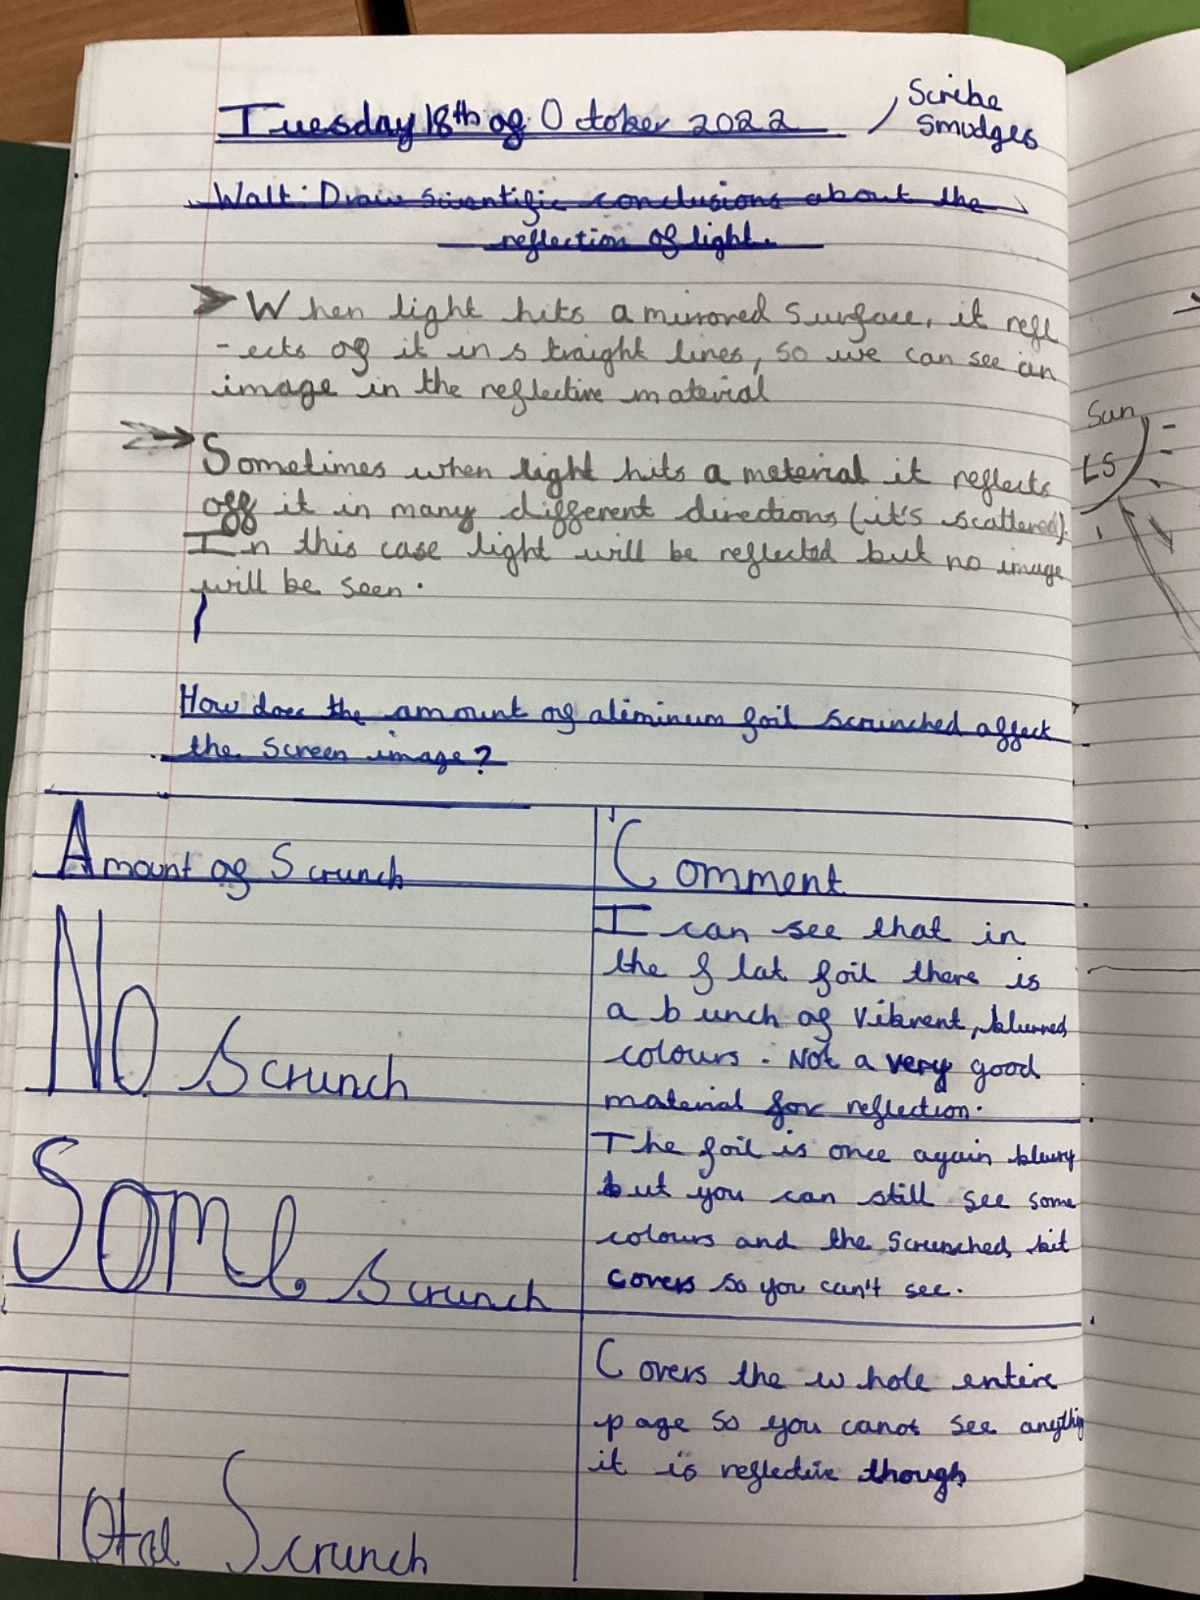 Tuesday 18th of October 2022
Scribe
Smudges
Walt: Draw scientific conclusions about the
reflection of light.
When light hits a mirrored surface, it refl
-ects of it in straight lines, so we can see an
image in the reflective material
Sometimes when light hits a material it reflects
off it in many different directions (it's scattered).
In this case light will be reflected but no image
will be seen.
How does the amount of aliminum foil scrunched affect
the screen image?
Amount of Scrunch
Comment
No Scrunch
I can see that in
the flat foil there is
a bunch of vibrent, blurred
colours. Not a very good
material for reflection.
Some Scrunch
The foil is once again blurry
but you can still see some
colours and the scrunched bit
covers so you can't see.
Total Scrunch
Covers the whole entire
page so you canot see anything
it is reflective though
Sun
LS